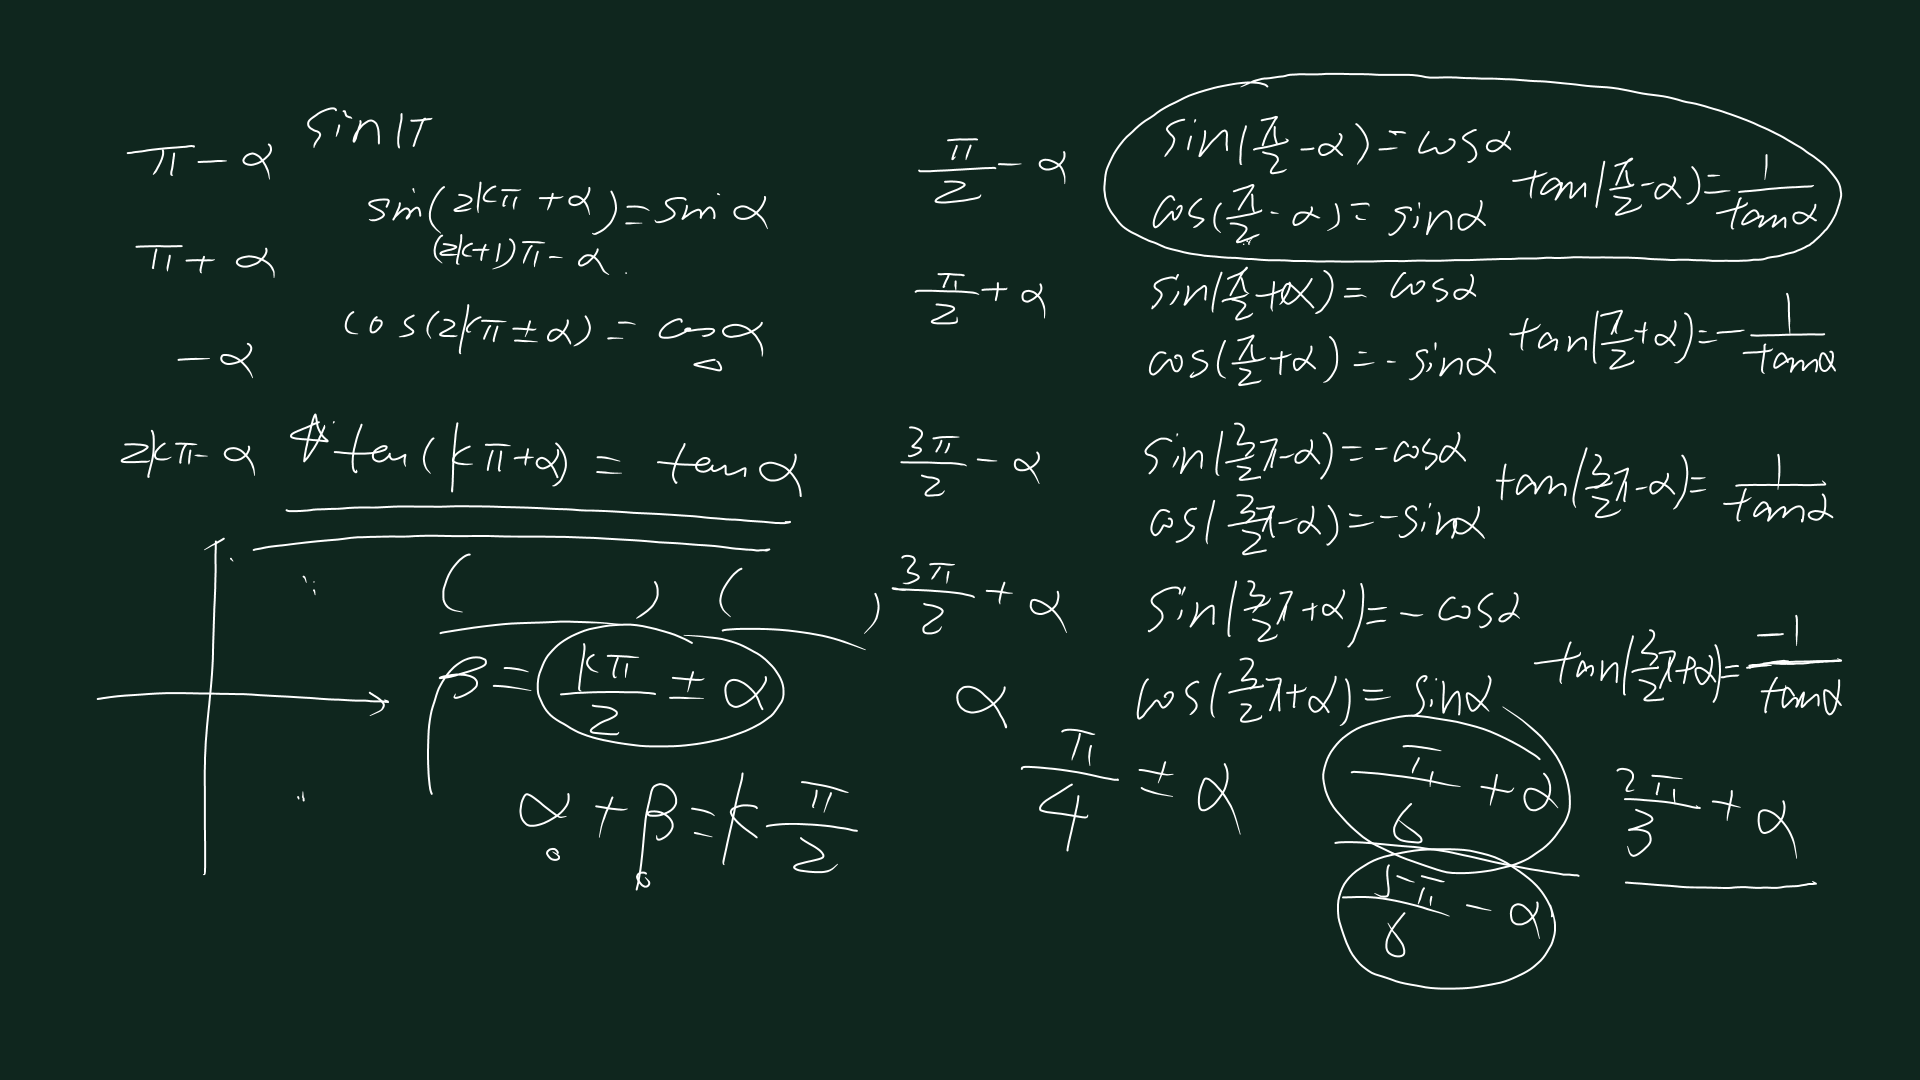 π-α
sinπ
sin(2kπ+α)=sinα
(2k+1)π-α
π+α
cos(2kπ±α)=cosα
-α
2kπ-α
tan(kπ+α)=tanα
( ) ( )
β=kπ/2±α
α+β=kπ/2
π/2-α
sin(π/2-α)=cosα
cos(π/2-α)=sinα
tan(π/2-α)=1/tanα
π/2+α
sin(π/2+α)=cosα
cos(π/2+α)=-sinα
tan(π/2+α)=-1/tanα
3π/2-α
sin(3/2π-α)=-cosα
cos(3/2π-α)=-sinα
tan(3/2π-α)=1/tanα
3π/2+α
sin(3/2π+α)=-cosα
cos(3/2π+α)=sinα
tan(3/2π+α)=-1/tanα
α
π/4±α
π/6+α
2π/3+α
5π/6-α